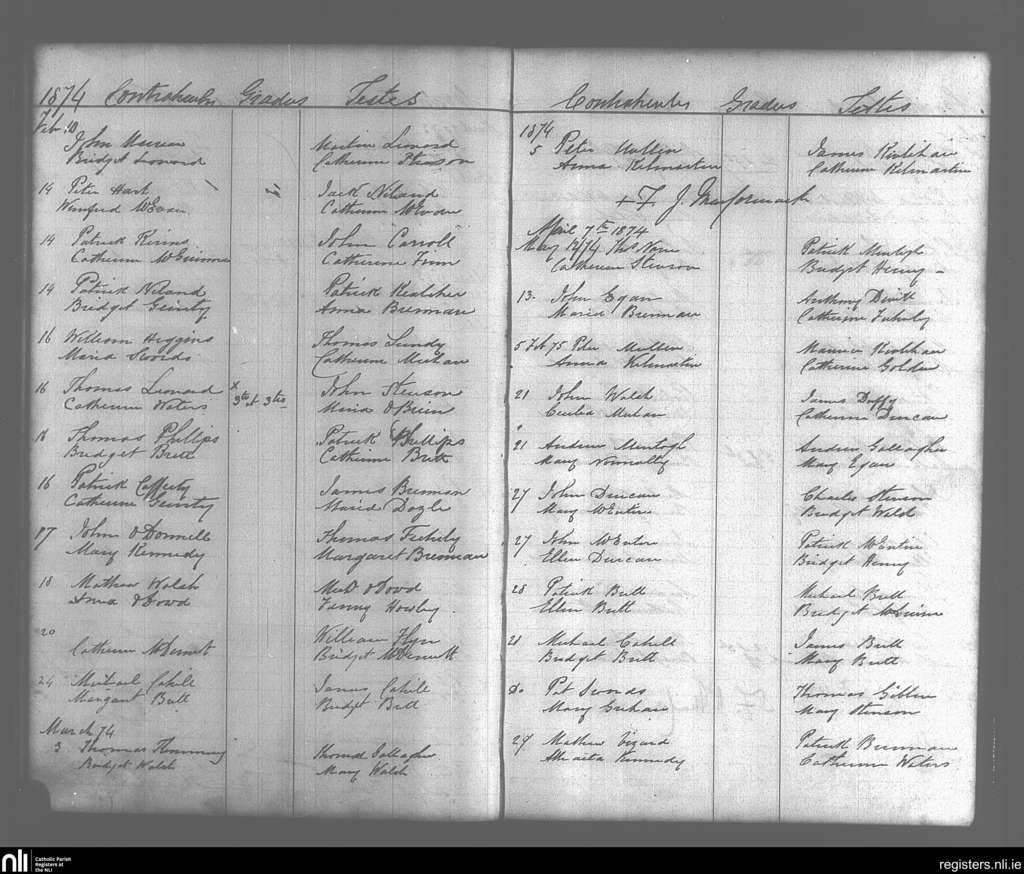 1874 Contrahentes Gradus Testes
Feb. 10
John
Bridget Leonard
Martin Leonard
Catherine Stenson
14 Peter Hart
Winifred McEvoy
Jack Niland
Catherine
14 Patrick
Catherine
John Carroll
Catherine Finn
14 Patrick Niland
Bridget Geinty
Patrick Kealeher
Anna Brennan
16 William Higgins
Maria Swords
Thomas Lundy
Catherine Meehan
16 Thomas Leonard
Catherine Waters
3tio et 3tio
John Stenson
Maria O Brien
16 Thomas Phillips
Bridget Brett
Patrick Phillips
Catherine Brett
16 Patrick Cafferty
Catherine Geinty
James Brennan
Maria Doyle
17 John O Donnell
Mary Kennedy
Thomas Feehely
Margaret Brennan
18 Mathew Walsh
Anna O Dowd
O Dowd
Fanny Horsley
20
Catherine McDermott
William Flyn
Bridget McDermott
24 Michael Cahill
Margaret Brett
James Cahill
Bridget Brett
March 74
3 Thomas
Bridget Walsh
Thomas Gallagher
Mary Walsh
Contrahentes Gradus Testes
1874
5 Peter Mullen
Anna Kilmartin
James
Catherine Kilmartin
+ F. J. MacCormack
April 7th 1874
May 12/74 Ths
Catherine Stenson
Patrick
Bridget Henry
13. John Egan
Maria Brennan
Anthony Devitt
Catherine Feehely
5 Feb 75 Peter Mullen
Anna Kilmartin
Maurice
Catherine Golden
21 John Walsh
Cecilia Meehan
James Duffy
Catherine Duncan
21 Andrew
Mary
Andrew Gallagher
Mary Egan
27 John Duncan
Mary McEntire
Charles Stenson
Bridget Walsh
27 John McEntire
Ellen Duncan
Patrick McEntire
Bridget Henry
28 Patrick Brett
Ellen Brett
Michael Brett
Bridget
28 Michael Cahill
Bridget Brett
James Brett
Mary Brett
Do. Pat
Mary
Thomas Giblin
Mary Stenson
29 Mathew
Kennedy
Patrick Brennan
Catherine Waters
nli
Catholic Parish
Registers at
the NLI
registers.nli.ie